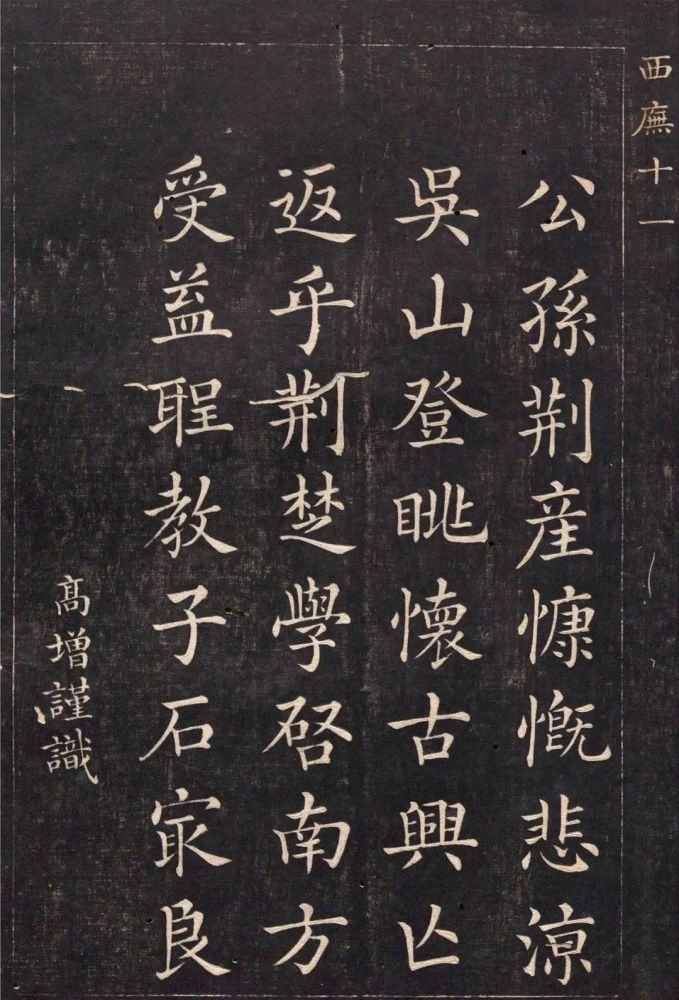 西廡十一
公孫荆產慷慨悲涼
吳山登眺懷古興亡
返乎荆楚學啓南方
受益聖教子石冣良
高增謹識